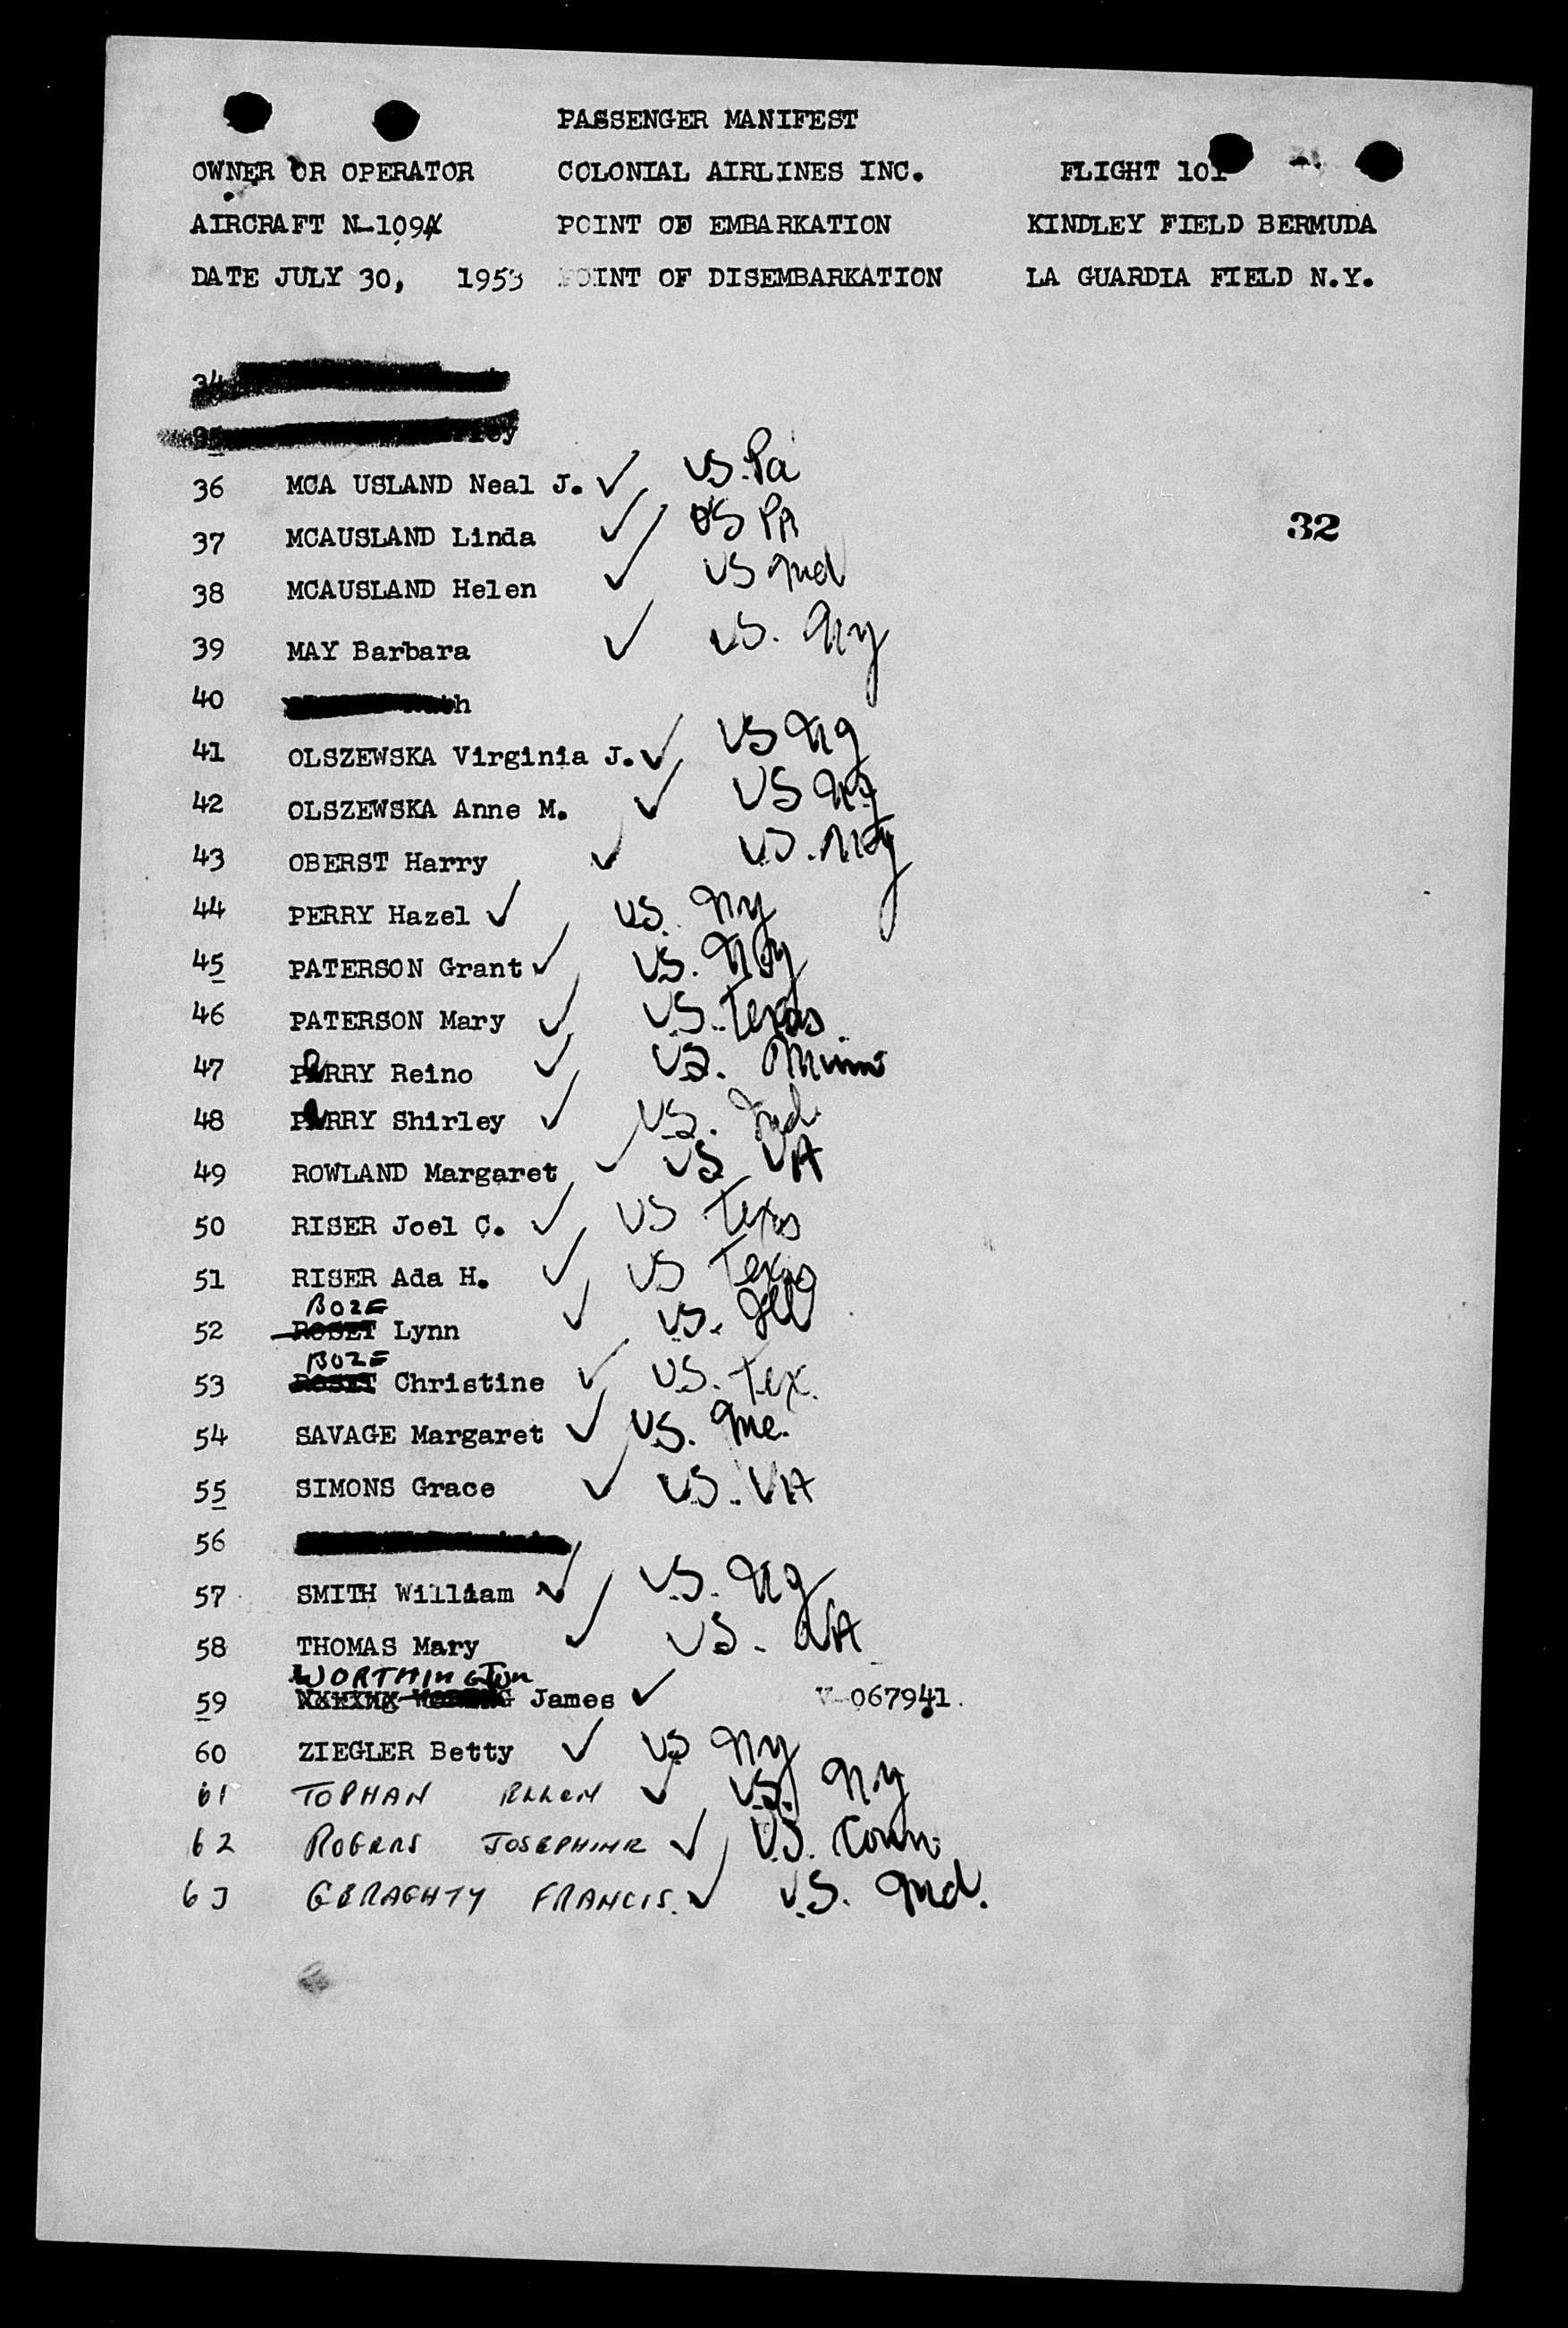 PASSENGER MANIFEST
OWNER OR OPERATOR COLONIAL AIRLINES INC. FLIGHT 101
AIRCRAFT N-109 POINT OF EMBARKATION KINDLEY FIELD BERMUDA
DATE JULY 30, 1953 POINT OF DISEMBARKATION LA GUARDIA FIELD N.Y.
34
36 MCA USLAND Neal J. ✓ US. Pa
37 MCAUSLAND Linda ✓ US PA
32
38 MCAUSLAND Helen ✓ US Md
39 MAY Barbara ✓ US. Ny
40
41 OLSZEWSKA Virginia J. ✓ US Ny
42 OLSZEWSKA Anne M. ✓ US Ny
43 OBERST Harry ✓ US. Ny
44 PERRY Hazel ✓ US. Ny
45 PATERSON Grant ✓ US. Ny
46 PATERSON Mary ✓ US. Texas
47 PERRY Reino ✓ US. Minn
48 PERRY Shirley ✓ US.
49 ROWLAND Margaret ✓ US VA
50 RISER Joel C. ✓ US Texas
51 RISER Ada H. ✓ US Texas
BOZE
52 ROSET Lynn ✓ US. Ill
BOZE
53 ROSET Christine ✓ US. Tex.
54 SAVAGE Margaret ✓ US. Me.
55 SIMONS Grace ✓ US. VA
56
57 SMITH William ✓ US. Ny
58 THOMAS Mary ✓ US. VA
WORTHINGTON
59 James ✓ V-067941.
60 ZIEGLER Betty ✓ US Ny
61 TOPHAN ELLEN ✓ US. N.y
62 ROGERS JOSEPHINE ✓ U.S. Conn.
63 GERAGHTY FRANCIS. ✓ U.S. Md.